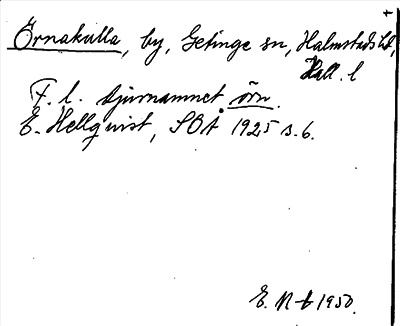 Örnakulla, by, Getinge sn, Halmstads hd,
Hall. l
F. l. djurnamnet örn.
E. Hellquist, SOÅ 1925 s. 6.
E. N-t 1950.